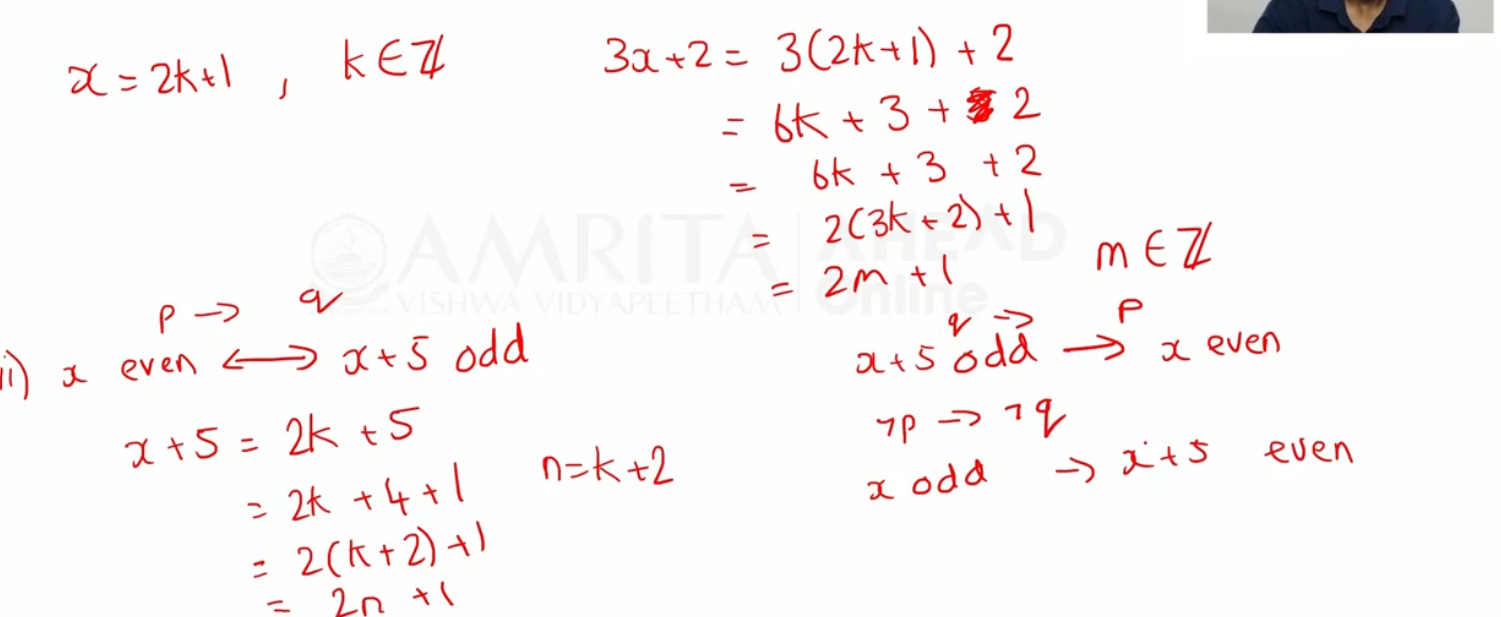 x = 2k+1 , k ∈ ℤ
3x+2 = 3(2k+1) + 2
= 6k + 3 + 2
= 6k + 3 + 2
= 2(3k+2) + 1
= 2m + 1 m ∈ ℤ
AMRITA AHEAD
VISHWA VIDYAPEETHAM Online
p → q
ii) x even ⟷ x+5 odd
x+5 = 2k + 5
= 2k + 4 + 1 n=k+2
= 2(k+2) + 1
= 2n + 1
q → p
x+5 odd → x even
¬p → ¬q
x odd → x+5 even